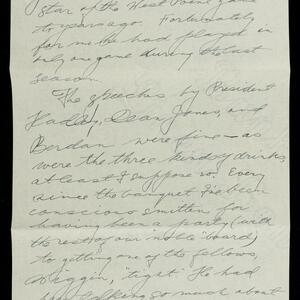 star of the West Point game
two years ago. Fortunately
for me he had played in
only one game during the last
season.
The speeches by President
Hadley, Dean Jones, and
Berdan were fine – as
were the three kinds of drinks,
at least I suppose so. Every
since the banquet I've been
conscious smitten for
having been a party (with
the rest of our noble 'board')
to getting one of the fellows,
"tight." He had
talking so much about